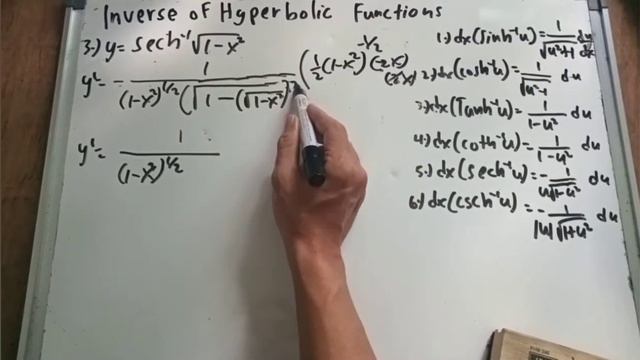 Inverse of Hyperbolic Functions
3.) y = sech⁻¹√(1-x²)
y' = - 1 / ((1-x²)^(1/2) (√(1-(√(1-x²))²)) (1/2 (1-x²)^(-1/2) (-2x)
y' = 1 / (1-x²)^(1/2)
1.) dx(sinh⁻¹u) = 1/√(u²+1) du/dx
2.) dx(cosh⁻¹u) = 1/√(u²-1) du
3.) dx(Tanh⁻¹u) = 1/(1-u²) du
4.) dx(coth⁻¹u) = 1/(1-u²) du
5.) dx(sech⁻¹u) = - 1/(u√(1-u²)) du
6.) dx(csch⁻¹u) = - 1/(|u|√(1+u²)) du